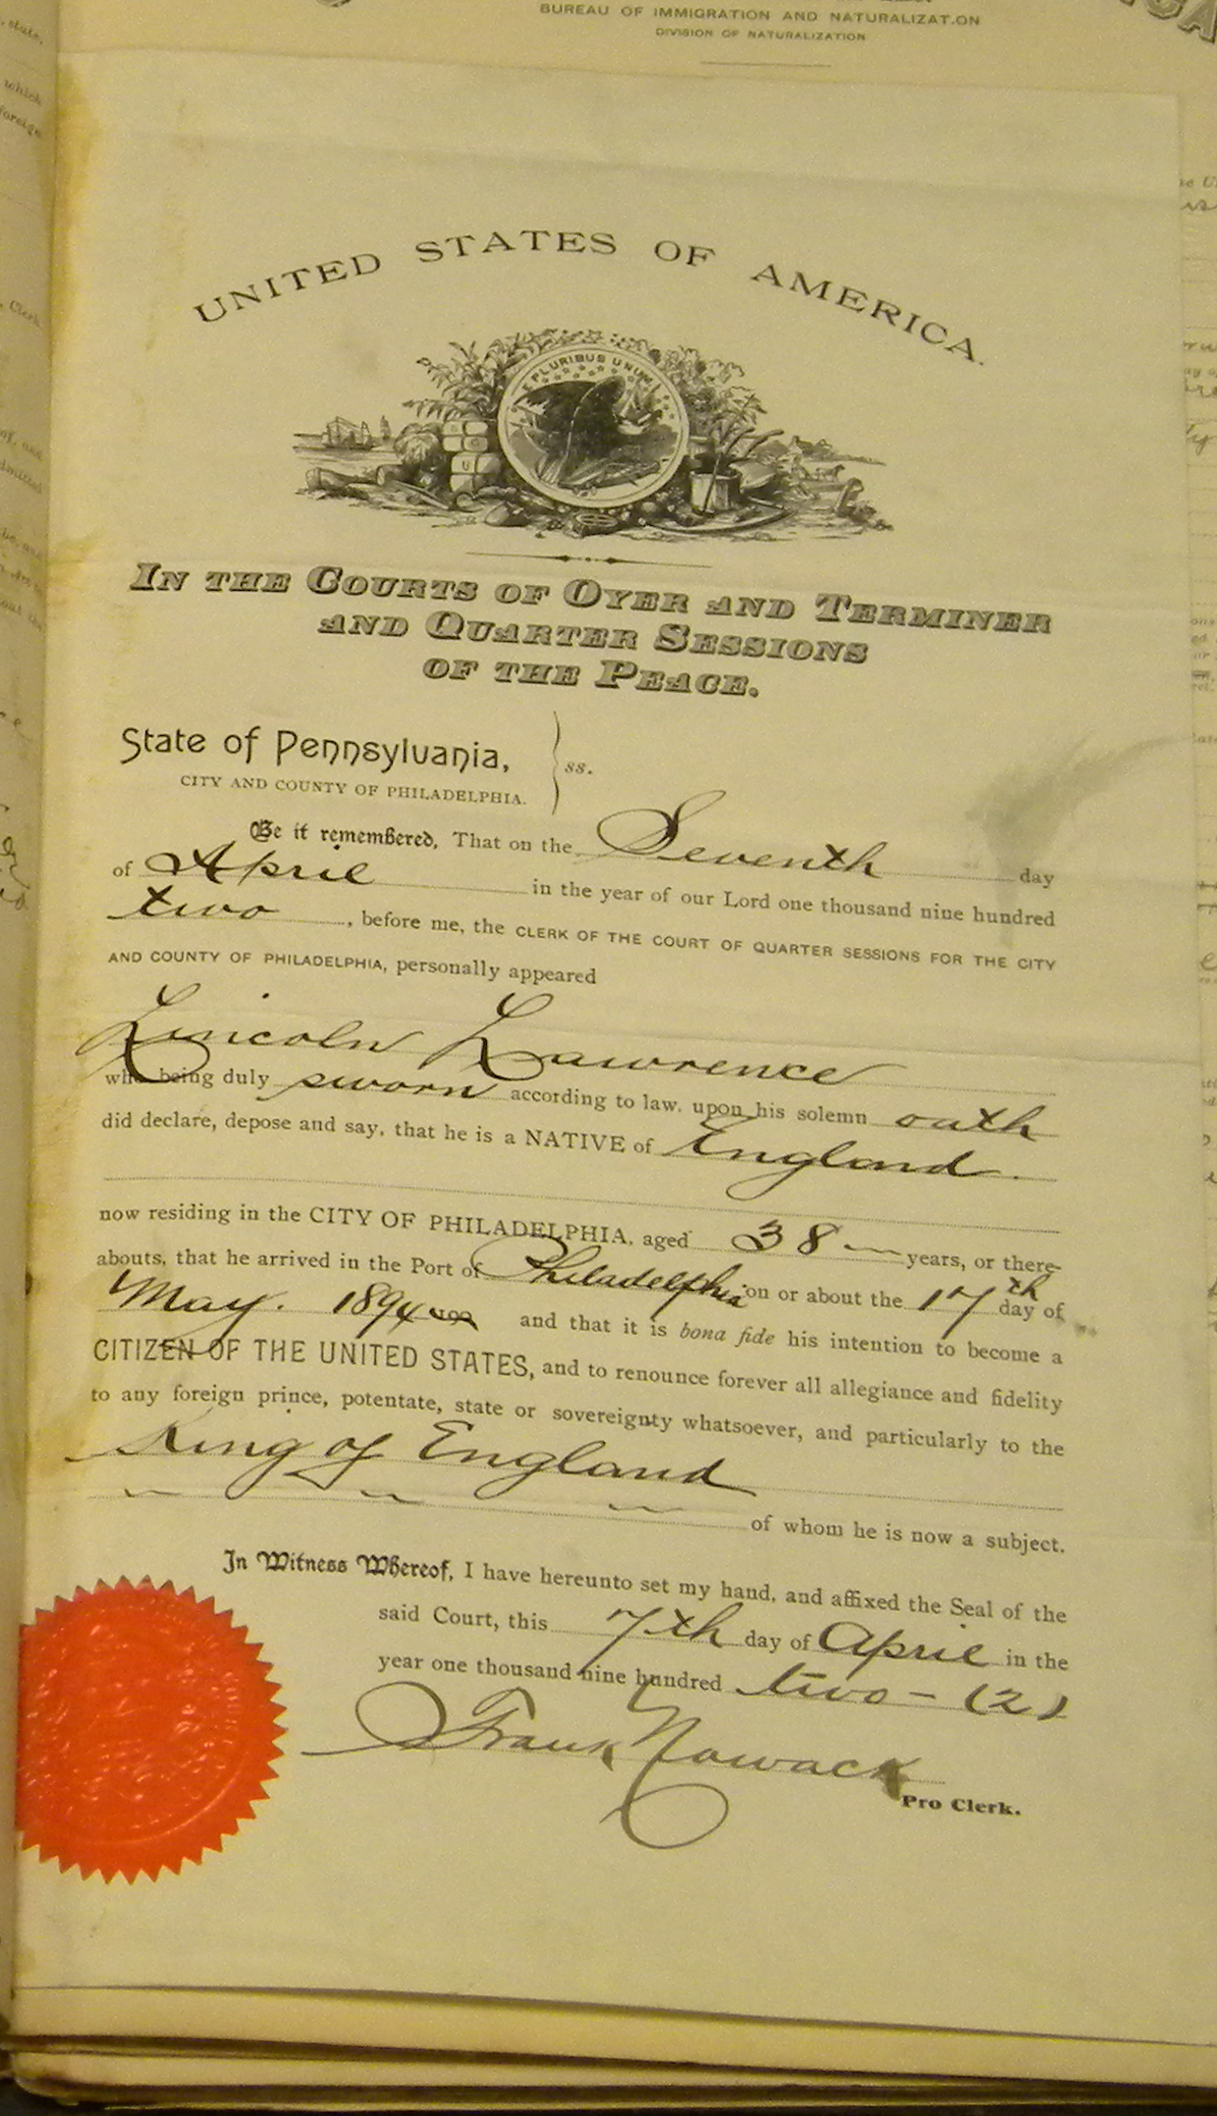 BUREAU OF IMMIGRATION AND NATURALIZATION
DIVISION OF NATURALIZATION
UNITED STATES OF AMERICA.
E PLURIBUS UNUM
IN THE COURTS OF OYER AND TERMINER
AND QUARTER SESSIONS
OF THE PEACE.
State of Pennsylvania,
ss.
CITY AND COUNTY OF PHILADELPHIA.
Be it remembered, That on the Seventh day
of April in the year of our Lord one thousand nine hundred
two, before me, the CLERK OF THE COURT OF QUARTER SESSIONS FOR THE CITY
AND COUNTY OF PHILADELPHIA, personally appeared
Lincoln Lawrence
who being duly sworn according to law, upon his solemn oath
did declare, depose and say, that he is a NATIVE of England.
now residing in the CITY OF PHILADELPHIA, aged 38 years, or there-
abouts, that he arrived in the Port of Philadelphia on or about the 17th day of
May. 1894 and that it is bona fide his intention to become a
CITIZEN OF THE UNITED STATES, and to renounce forever all allegiance and fidelity
to any foreign prince, potentate, state or sovereignty whatsoever, and particularly to the
King of England
of whom he is now a subject.
In Witness Whereof, I have hereunto set my hand, and affixed the Seal of the
said Court, this 7th day of April in the
year one thousand nine hundred two - (2)
Frank Nowack
Pro Clerk.